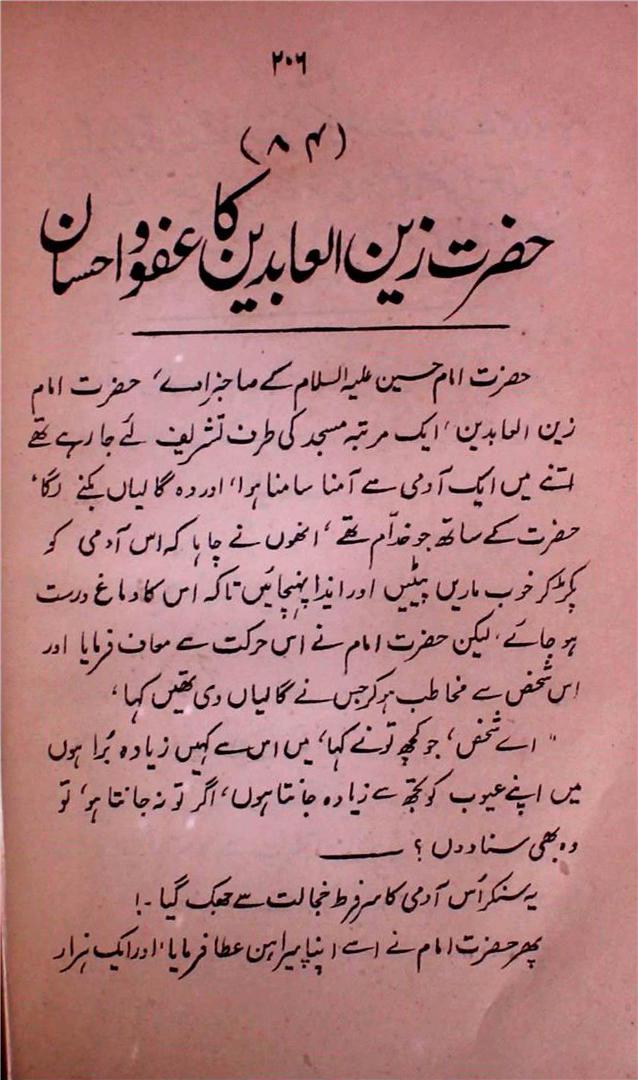 ۲۰۶
(۸۴)
حضرت زین العابدین کا عفو و احسان
حضرت امام حسین علیہ السلام کے صاحبزادے، حضرت امام
زین العابدین، ایک مرتبہ مسجد کی طرف تشریف لئے جا رہے تھے
اتنے میں ایک آدمی سے آمنا سامنا ہوا، اور وہ گالیاں بکنے لگا،
حضرت کے ساتھ جو خدّام تھے، انھوں نے چاہا کہ اس آدمی کو
پکڑ کر خوب ماریں پیٹیں اور ایذا پہنچائیں تاکہ اس کا دماغ درست
ہو جائے، لیکن حضرت امام نے اس حرکت سے معاف فرمایا اور
اس شخص سے مخاطب ہو کر جس نے گالیاں دی تھیں کہا،
"اے شخص، جو کچھ تو نے کہا، میں اس سے کہیں زیادہ بُرا ہوں
میں اپنے عیوب کو تجھ سے زیادہ جانتا ہوں، اگر تو نہ جانتا ہو، تو
وہ بھی سنا دوں؟ ——
یہ سنکر اُس آدمی کا سر فرط خجالت سے جھک گیا۔!
پھر حضرت امام نے اسے اپنا پیراہن عطا فرمایا، اور ایک ہزار